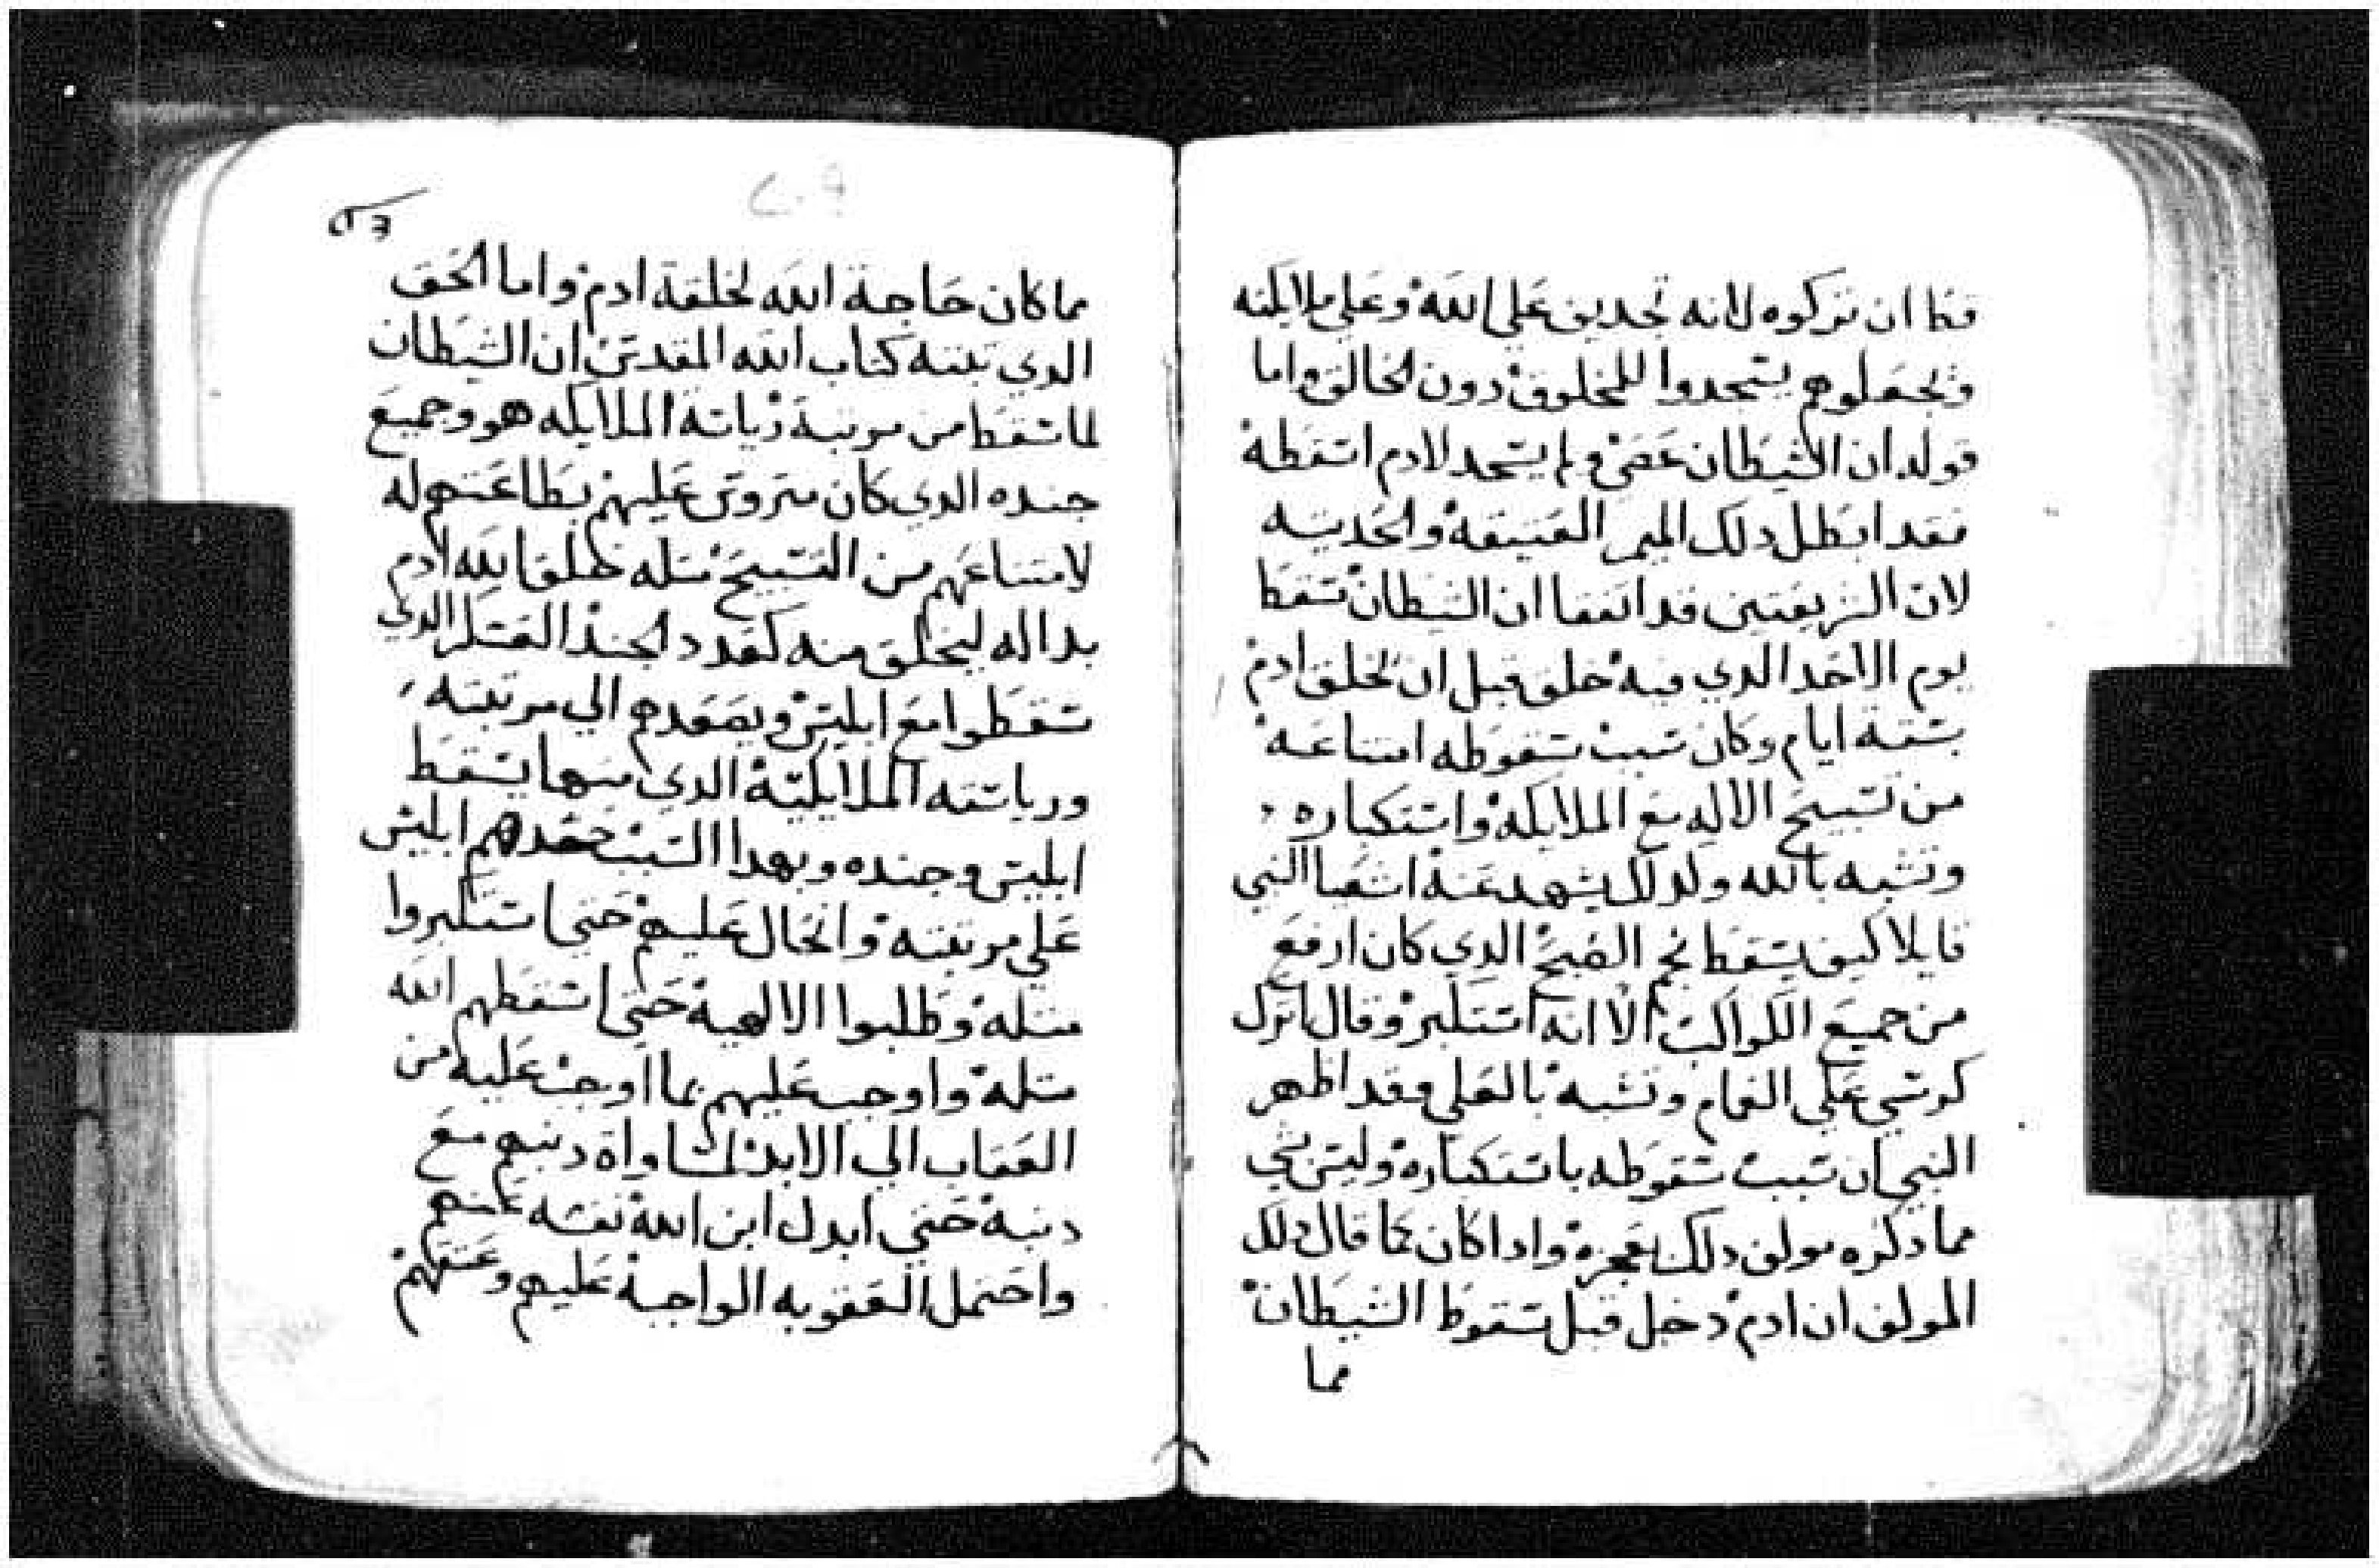 قط ان تتركوه لانه تجديف على الله وعلى ملايكته
وتجعلوهم يسجدوا للمخلوق دون الخالق واما
قوله ان الشيطان عصى ولم يسجد لادم اسقطه
فقد ابطل دلك الميمر العتيقة والحديته
لان الشريعتين قد اتفقا ان الشيطان سقط
يوم الاحد الدي فيه خلق قبل ان يخلق ادم
بستة ايام وكان سبب سقوطه امتناعه
من تسبيح الاله مع الملايكة واستكباره
وتشبه بالله ولدلك يشهد عنه اشعيا النبي
قايلا كيف يسقط نجم الصبح الدي كان ارفع
من جميع الكواكب الا انه استكبر وقال انزل
كرسي على الغمام وتشبه بالعلي وقد اظهر
النبي ان سبب سقوطه باستكباره وليس شي
مما دكره مولف دلك بعجزه وادا كان كما قال دلك
المولف ان ادم دخل قبل سقوط الشيطان
مما
٢٠٩
مما كان حاجة الله لخلقة ادم واما الحق
الدي تبته كتاب الله المقدس ان الشيطان
لما سقط من مرتبة رياسة الملايكه هو وجميع
جنده الدي كان متروس عليهم بطاعتهم له
لامتناعهم من التسبيح متله خلق الله ادم
بداله ليخلق منه كعدد الجند العسكر الدي
سقطوا مع ابليس ويصعدهم الي مرتبته
ورياسته الملايكية الدي منها يسقط
ابليس وجنده وبهدا السبب حسدهم ابليس
علي مرتبته واحتال عليهم حتي استكبروا
متله وطلبوا الالهية حتي اسقطهم الله
متله واوجب عليهم بما اوجب عليه من
العقاب الي الابد لمساواة دنبهم مع
دنبه حتي ابدل ابن الله نفسه عنهم
واحتمل العقوبه الواجبة عليهم وعتقهم